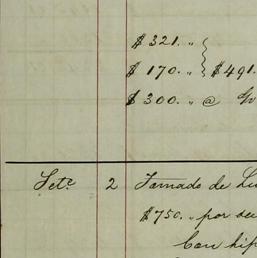 $ 321. "
$ 170. " $ 491.
$ 300. " @
Set.e 2 Tomado de Lu
$ 750. " por se
Con hip